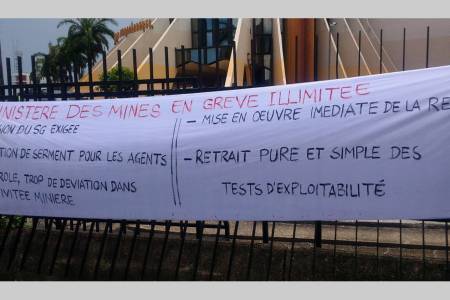 NISTERE DES MINES EN GREVE ILLIMITEE
SION DU SG EXIGÉE
TION DE SERMENT POUR LES AGENTS
ROLE, TROP DE DEVIATION DANS
IVITEE MINIERE
- MISE EN OEUVRE IMEDIATE DE LA RE
- RETRAIT PURE ET SIMPLE DES
TESTS D'EXPLOITABILITÉ